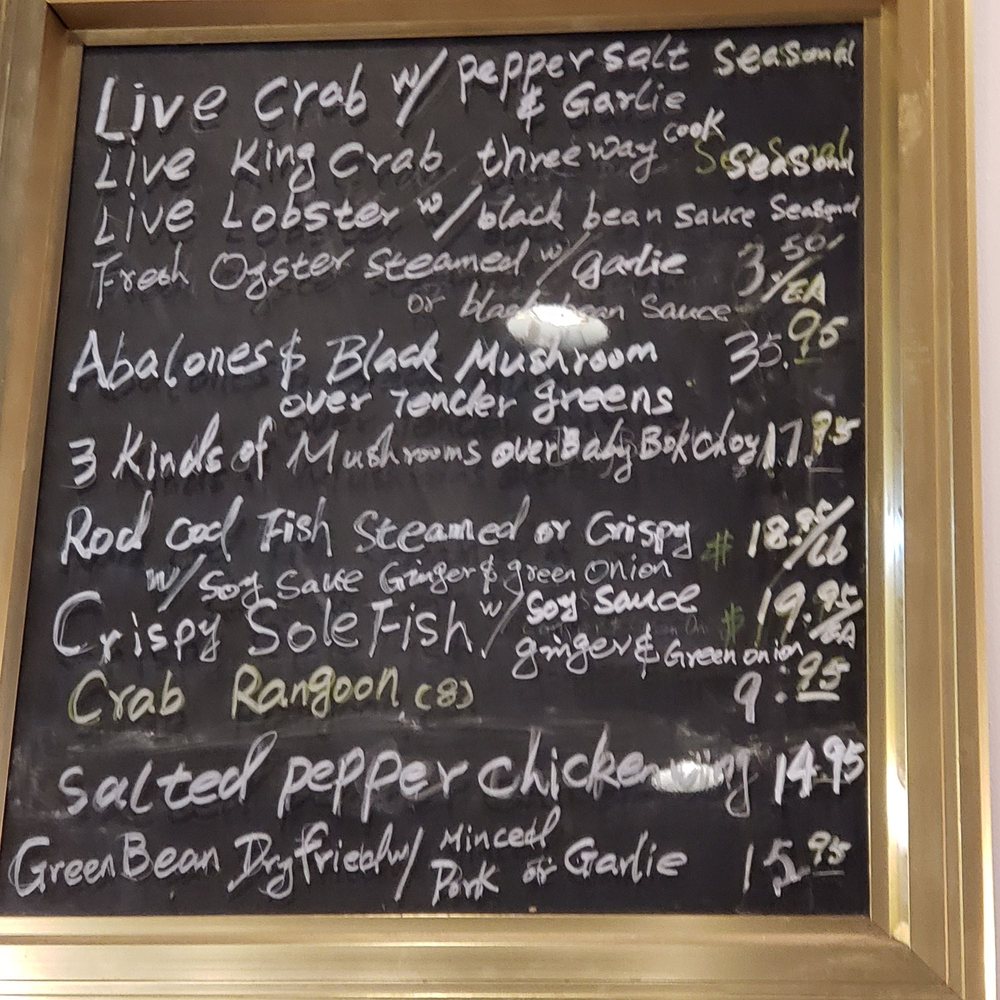 Live Crab w/ pepper salt Seasonal
& Garlie
Live King Crab three way cook Seasonal
Live Lobster w/ black bean sauce Seasonal
Fresh Oyster Steamed w/ garlie 3.50/EA
or black bean Sauce
Abalones & Black Mushroom 35.95
over Tender greens
3 Kinds of Mushrooms over Baby Bok Choy 17.95
Rod cod Fish Steamed or Crispy $18.95/Lb
w/ Soy Sauce Ginger & green Onion
Crispy Sole Fish w/ Soy Sauce $19.95/EA
ginger & Green onion
Crab Rangoon (8) 9.95
Salted pepper chicken wing 14.95
Green Bean Dry fried w/ Minced
Pork or Garlie 15.95